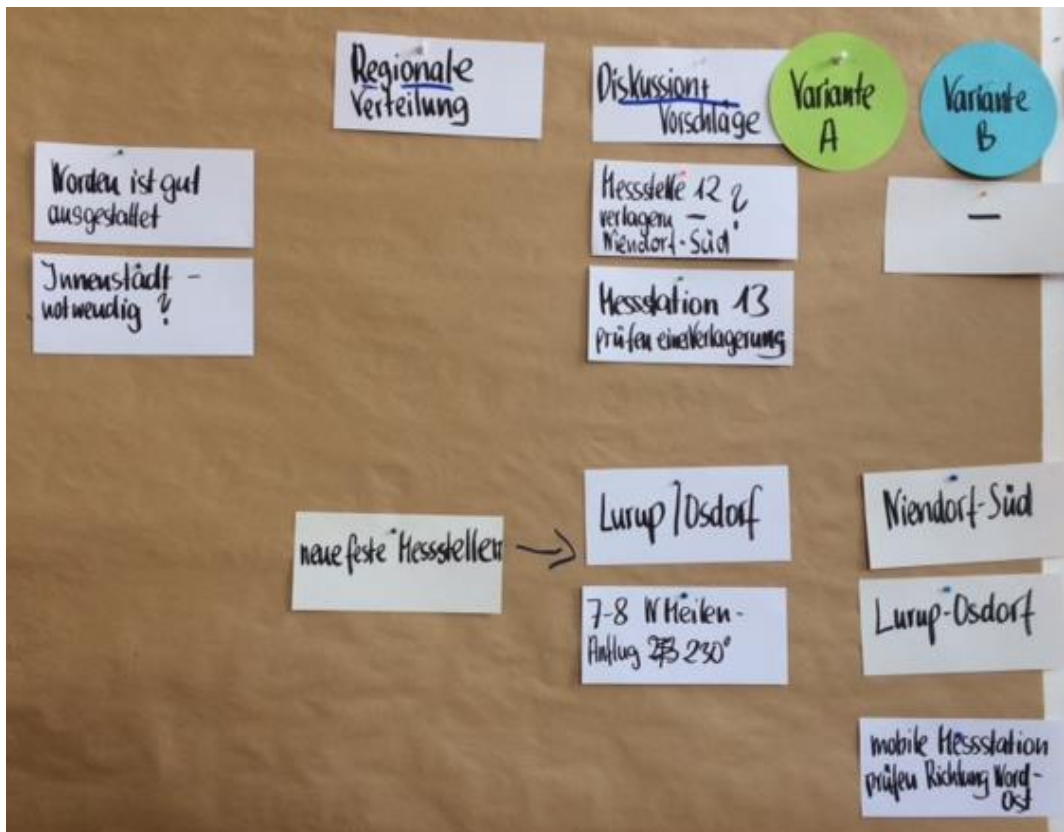 Regionale
Verteilung
Diskussion+
Vorschläge
Variante
A
Variante
B
Norden ist gut
ausgestattet
Innenstadt -
notwendig ?
Messstelle 12 ?
verlagern -
Niendorf-Süd
—
Messstation 13
prüfen eine Verlagerung
neue feste Messstellen →
Lurup/Osdorf
7-8 N Meilen-
Anflug 230°
Niendorf-Süd
Lurup-Osdorf
mobile Messstation
prüfen Richtung Nord-
Ost